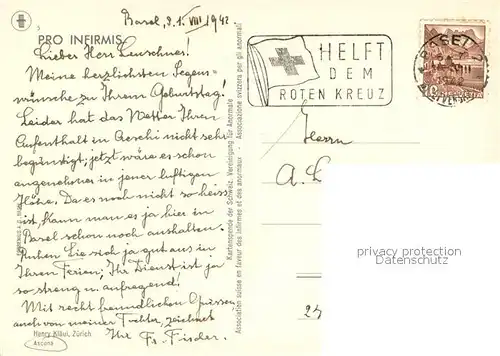 Basel, 21. VIII 1942.
PRO INFIRMIS
Lieber Herr Leuschner!
Meine herzlichsten Segens-
wünsche zu Ihrem Geburtstag!
Leider hat das Wetter Ihren
Aufenthalt in Aeschi nicht sehr
begünstigt; jetzt wäre es schon
angenehmer in jener luftigen
Höhe. Da es noch nicht so heiss
ist, kann man es ja hier in
Basel schon noch aushalten.
Ruhen Sie sich ja gut aus in
Ihren Ferien; Ihr Dienst ist ja
so streng u. aufregend!
Mit recht freundlichen Grüssen,
auch von meiner Tochter, zeichnet
Ihr Fr. Fischer.
Henry Kläui, Zürich
Ascona
Kartenspende der Schweiz. Vereinigung für Anormale
Association suisse en faveur des infirmes et des anormaux - Associazione svizzera per gli anormali
HELFT
DEM
ROTEN KREUZ
BASEL
Herrn
A. L
privacy protection
Datenschutz